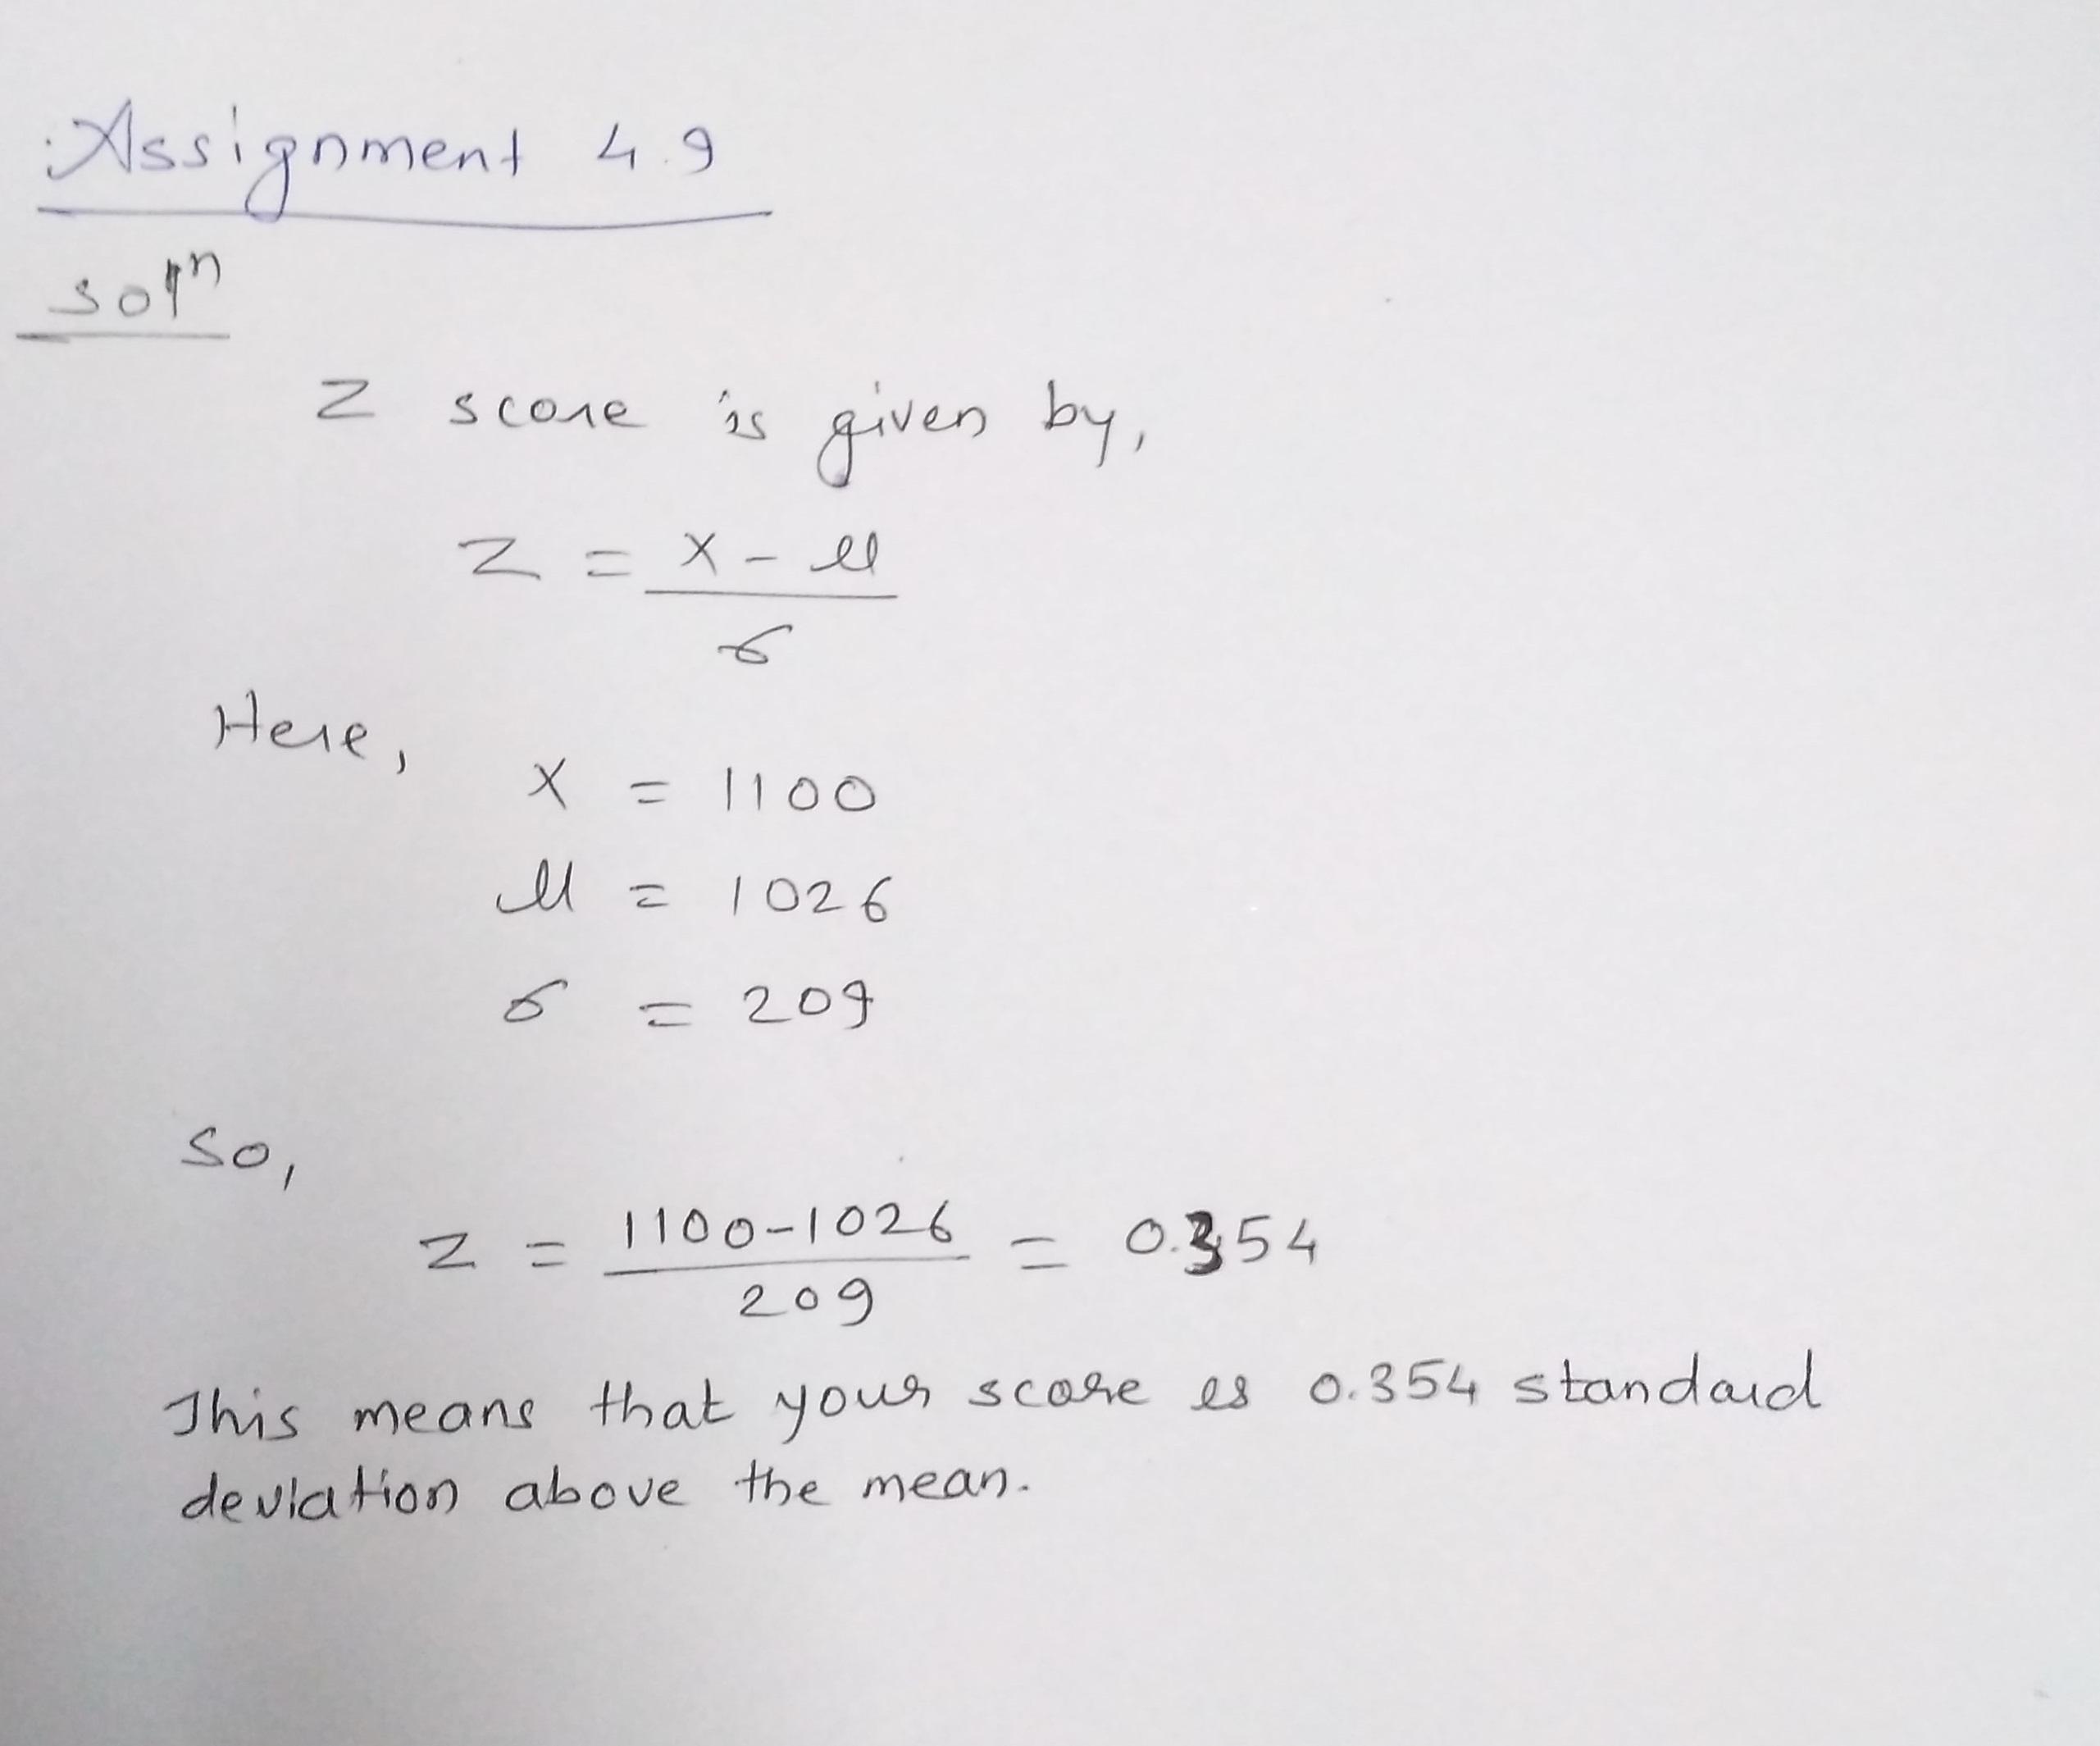 Assignment 4.9
Solⁿ
Z score is given by,
Z = X - μ
σ
Here,
X = 1100
μ = 1026
σ = 209
So,
Z = 1100-1026 = 0.354
209
This means that your score is 0.354 standard
deviation above the mean.